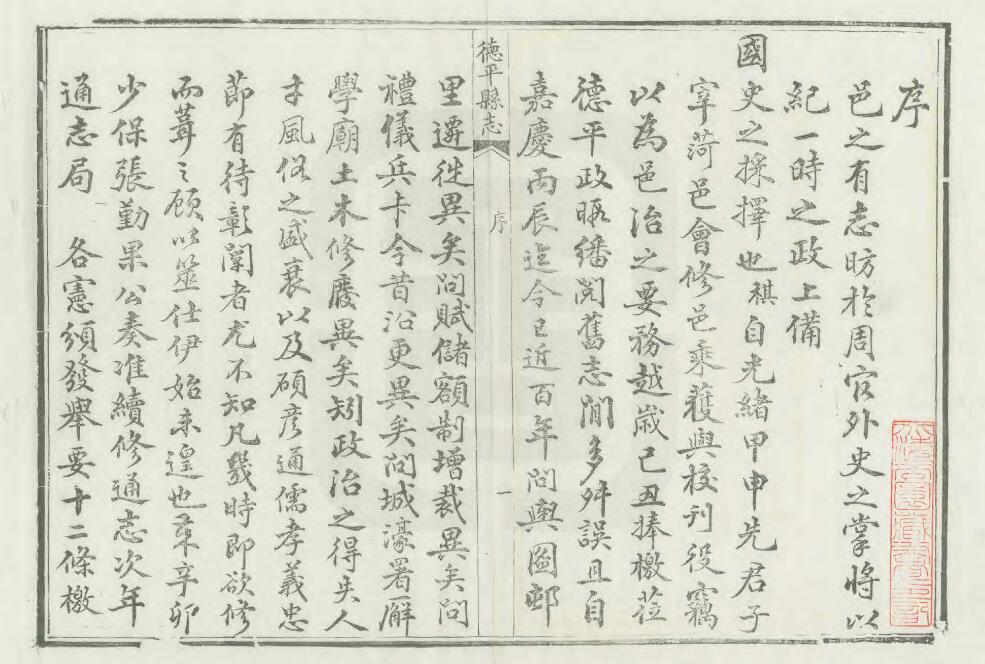 序
邑之有志昉於周官外史之掌將以
紀一時之政上備
國史之採擇也棋自光緒甲申先君子
宰菏邑會修邑乘獲與校刊役竊
以為邑治之要務越歲己丑捧檄蒞
德平政暇繙閱舊志間多舛誤且自
嘉慶丙辰迄今已近百年問輿圖邨
德平縣志
序
一
里遷徙異矣問賦儲額制增裁異矣問
禮儀兵卡今昔沿更異矣問城濠署廨
學廟土木修廢異矣矧政治之得失人
才風俗之盛衰以及碩彥通儒孝義忠
節有待彰闡者尤不知凡幾時即欲修
而葺之顧以筮仕伊始未遑也辛卯
少保張勤果公奏准續修通志次年
通志局 各憲頒發舉要十二條檄